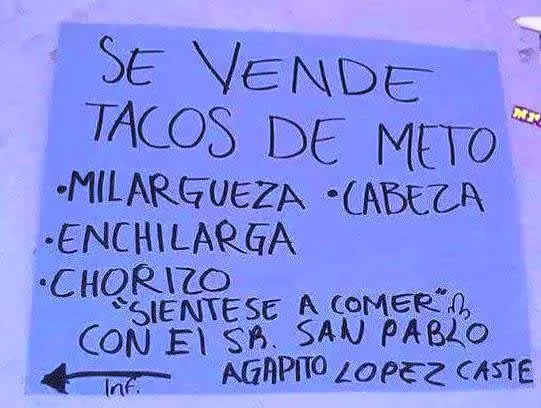 SE VENDE
TACOS DE METO
•MILARGUEZA •CABEZA
•ENCHILARGA
•CHORIZO
"SIENTESE A COMER"
CON El SR. SAN PABLO
AGAPITO LOPEZ CASTE
Inf.